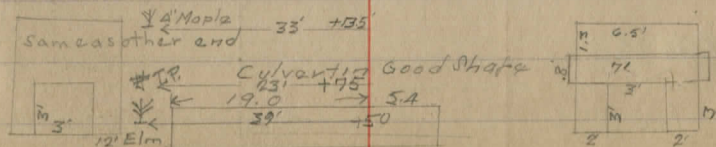 4" Maple 33' +35'
Same as other end
6.5'
1.2'
Culvert in Good Shape
T.P. 23' +75
7'
.8'
19.0 5.4
3'
39' +50
3'
3'
3'
3'
12' Elm
2' 2'